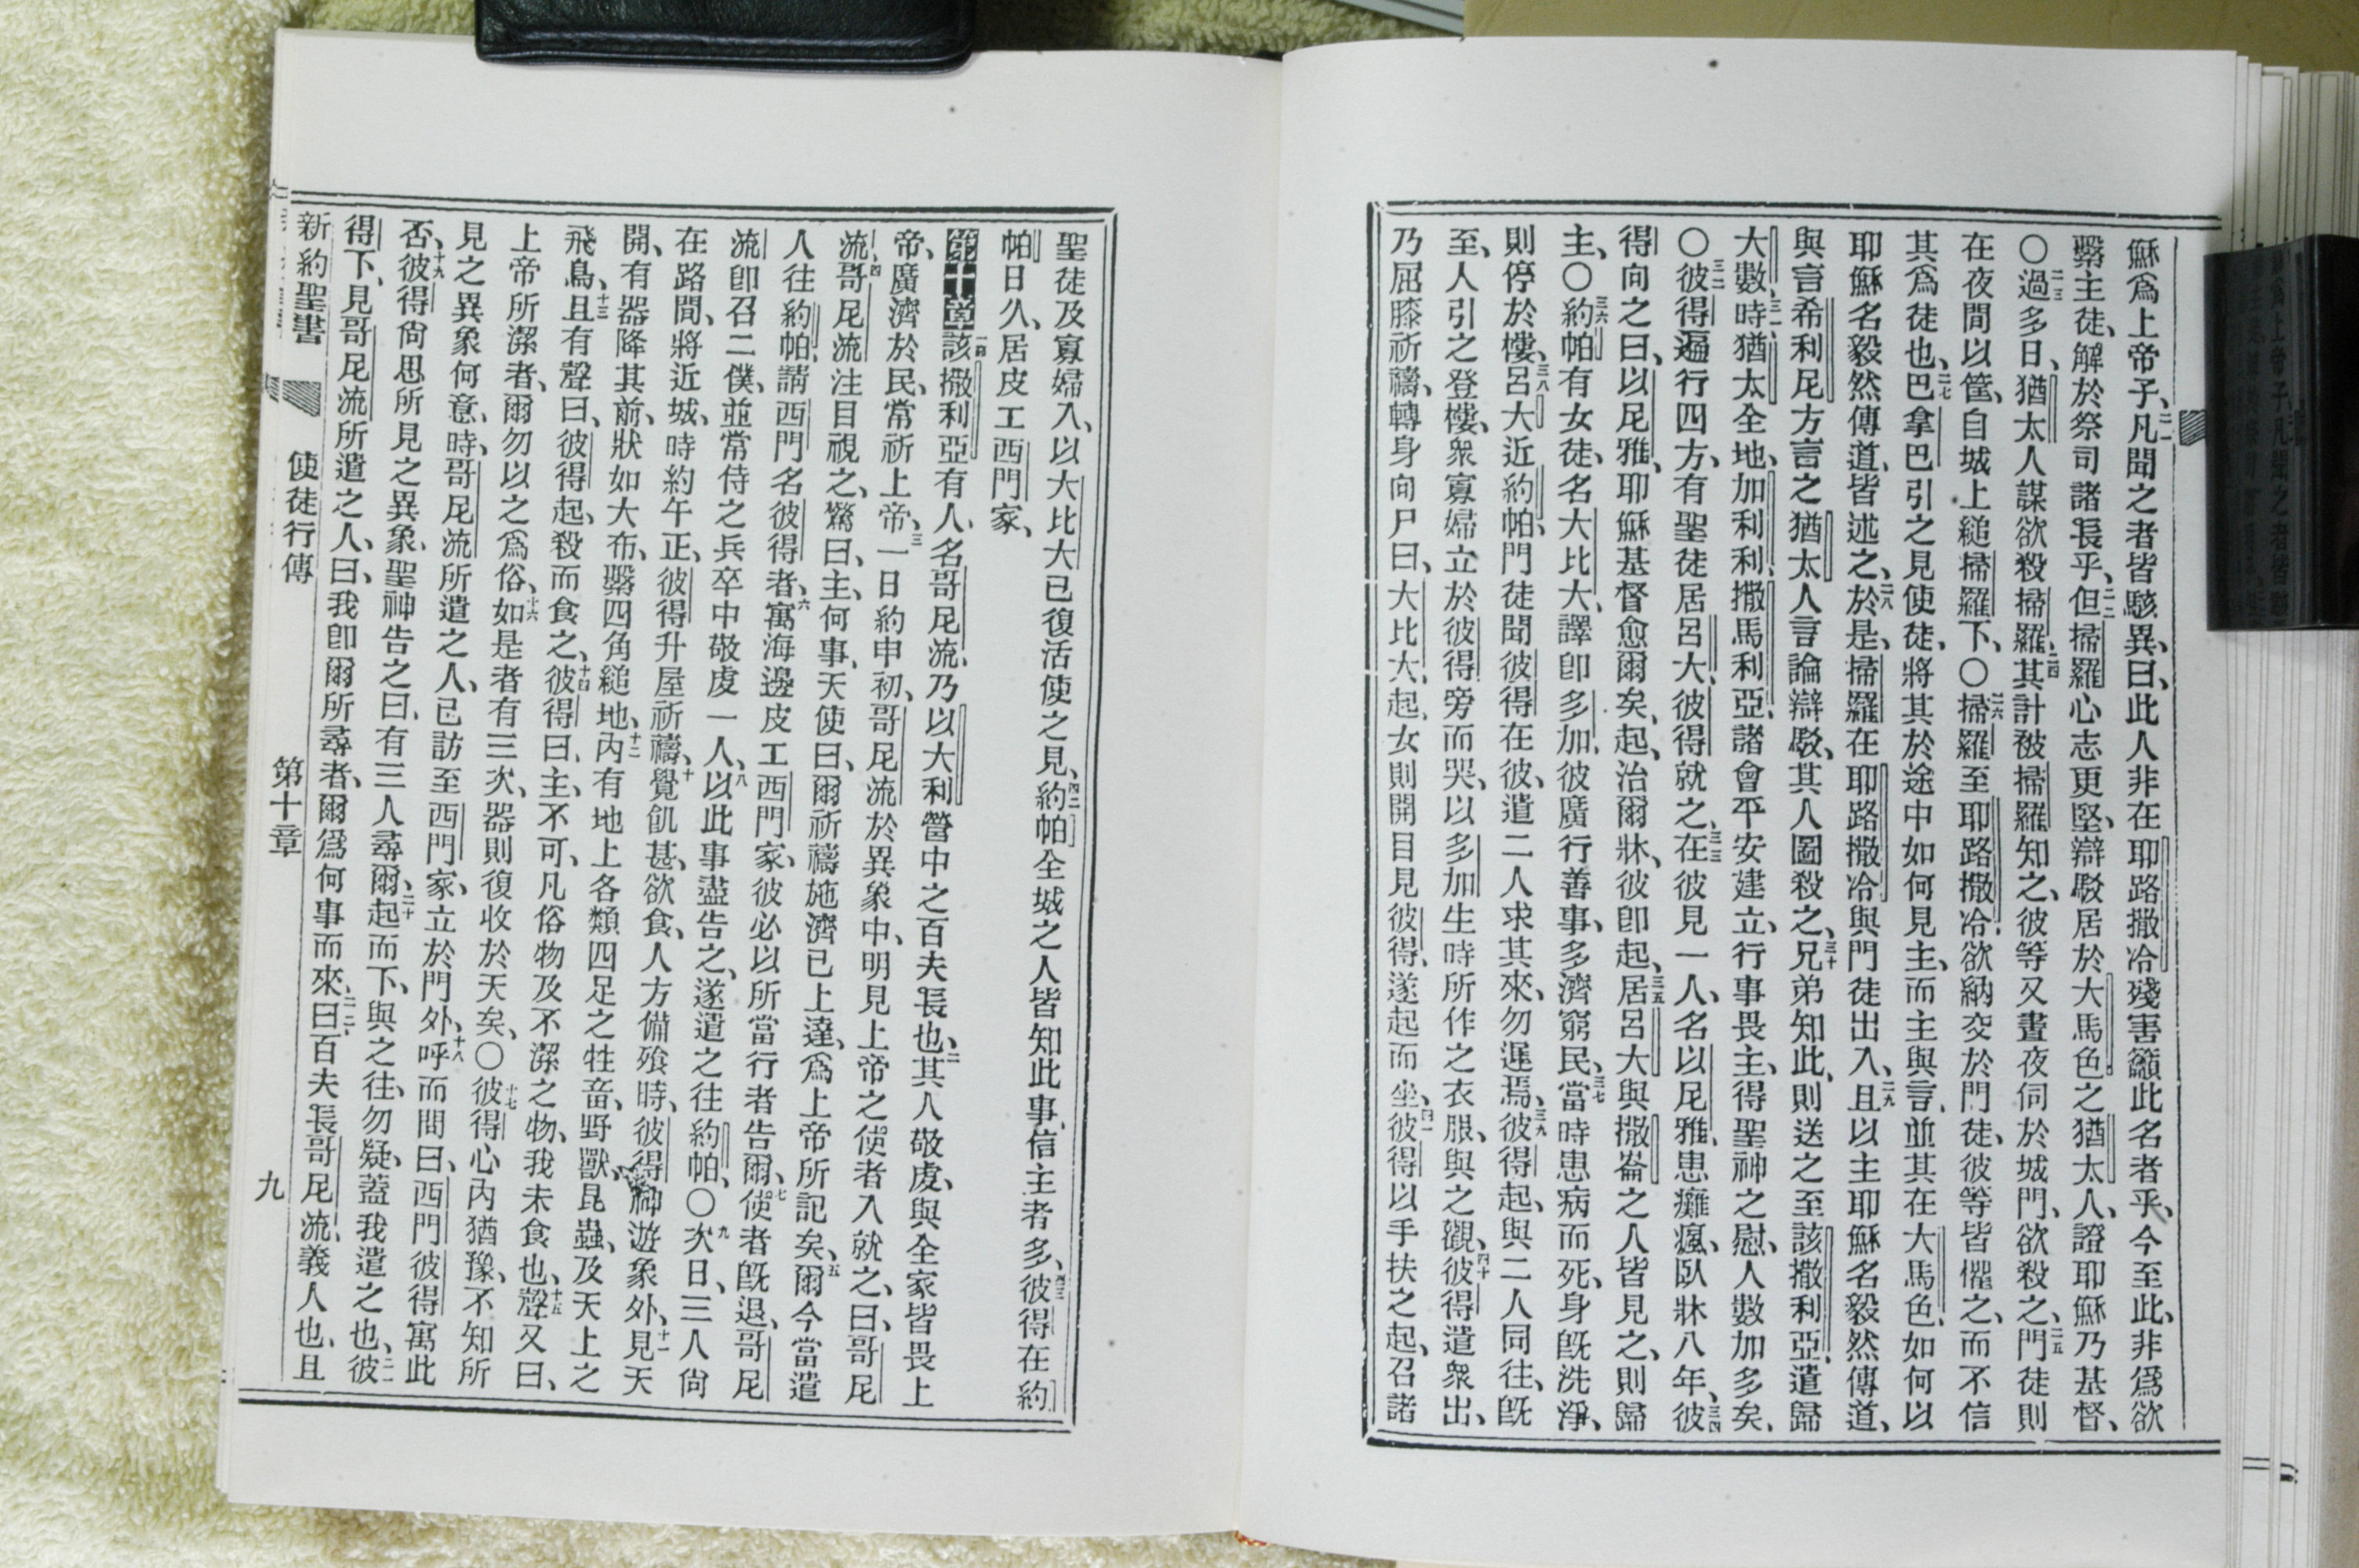 穌爲上帝子、二一凡聞之者皆駭異、曰、此人非在耶路撒冷殘害籲此名者乎、今至此、非爲欲
繫主徒、解於祭司諸長乎、二二但掃羅心志更堅、辯駁居於大馬色之猶太人、證耶穌乃基督、
〇二三過多日、猶太人謀欲殺掃羅、二四其計被掃羅知之、彼等又晝夜伺於城門、欲殺之、二五門徒則
在夜間以筐、自城上縋掃羅下、〇二六掃羅至耶路撒冷、欲納交於門徒、彼等皆懼之、而不信
其爲徒也、二七巴拿巴引之見使徒、將其於途中如何見主、而主與言、並其在大馬色、如何以
耶穌名毅然傳道、皆述之、二八於是、掃羅在耶路撒冷、與門徒出入、二九且以主耶穌名毅然傳道、
與言希利尼方言之猶太人言論辯駁、其人圖殺之、三十兄弟知此、則送之至該撒利亞、遣歸
大數、三一時猶太全地、加利利、撒馬利亞、諸會平安建立、行事畏主、得聖神之慰、人數加多矣、
〇三二彼得遍行四方、有聖徒居呂大、彼得就之、三三在彼見一人、名以尼雅、患癱瘋、臥牀八年、三四彼
得向之曰、以尼雅、耶穌基督愈爾矣、起、治爾牀、彼卽起、三五居呂大與撒崙之人皆見之、則歸
主、〇三六約帕有女徒、名大比大、譯卽多加、彼廣行善事、多濟窮民、三七當時患病而死、身旣洗淨、
則停於樓、三八呂大近約帕、門徒聞彼得在彼、遣二人求其來、勿遲焉、三九彼得起、與二人同往、旣
至、人引之登樓、衆寡婦立於彼得旁而哭、以多加生時所作之衣服、與之觀、四十彼得遣衆出、
乃屈膝祈禱、轉身向尸曰、大比大、起、女則開目見彼得、遂起而坐、四一彼得以手扶之起、召諸
聖徒及寡婦入、以大比大已復活使之見、四二約帕全城之人皆知此事、信主者多、四三彼得在約
帕日久、居皮工西門家、
第十章一節該撒利亞有人、名哥尼流、乃以大利營中之百夫長也、二其人敬虔、與全家皆畏上
帝、廣濟於民、常祈上帝、三一日約申初、哥尼流於異象中、明見上帝之使者入就之、曰、哥尼
流、四哥尼流注目視之、驚曰、主、何事、天使曰、爾祈禱施濟已上達、爲上帝所記矣、五爾今當遣
人往約帕、請西門名彼得者、六寓海邊皮工西門家、彼必以所當行者告爾、七使者旣退、哥尼
流卽召二僕、並常侍之兵卒中敬虔一人、八以此事盡告之、遂遣之往約帕、〇九次日、三人尙
在路間、將近城、時約午正、彼得升屋祈禱、十覺飢甚、欲食、人方備飱時、彼得神游象外、十一見天
開、有器降其前、狀如大布、繫四角縋地、十二內有地上各類四足之牲畜、野獸、昆蟲、及天上之
飛鳥、十三且有聲曰、彼得起、殺而食之、十四彼得曰、主、不可、凡俗物及不潔之物、我未食也、十五聲又曰、
上帝所潔者、爾勿以之爲俗、十六如是者有三次、器則復收於天矣、〇十七彼得心內猶豫、不知所
見之異象何意、時、哥尼流所遣之人、已訪至西門家、立於門外、十八呼而問曰、西門彼得寓此
否、十九彼得尙思所見之異象、聖神告之曰、有三人尋爾、二十起而下、與之往、勿疑、蓋我遣之也、二一彼
得下、見哥尼流所遣之人、曰、我卽爾所尋者、爾爲何事而來、二二曰、百夫長哥尼流、義人也、且
新約聖書 使徒行傳 第十章 九